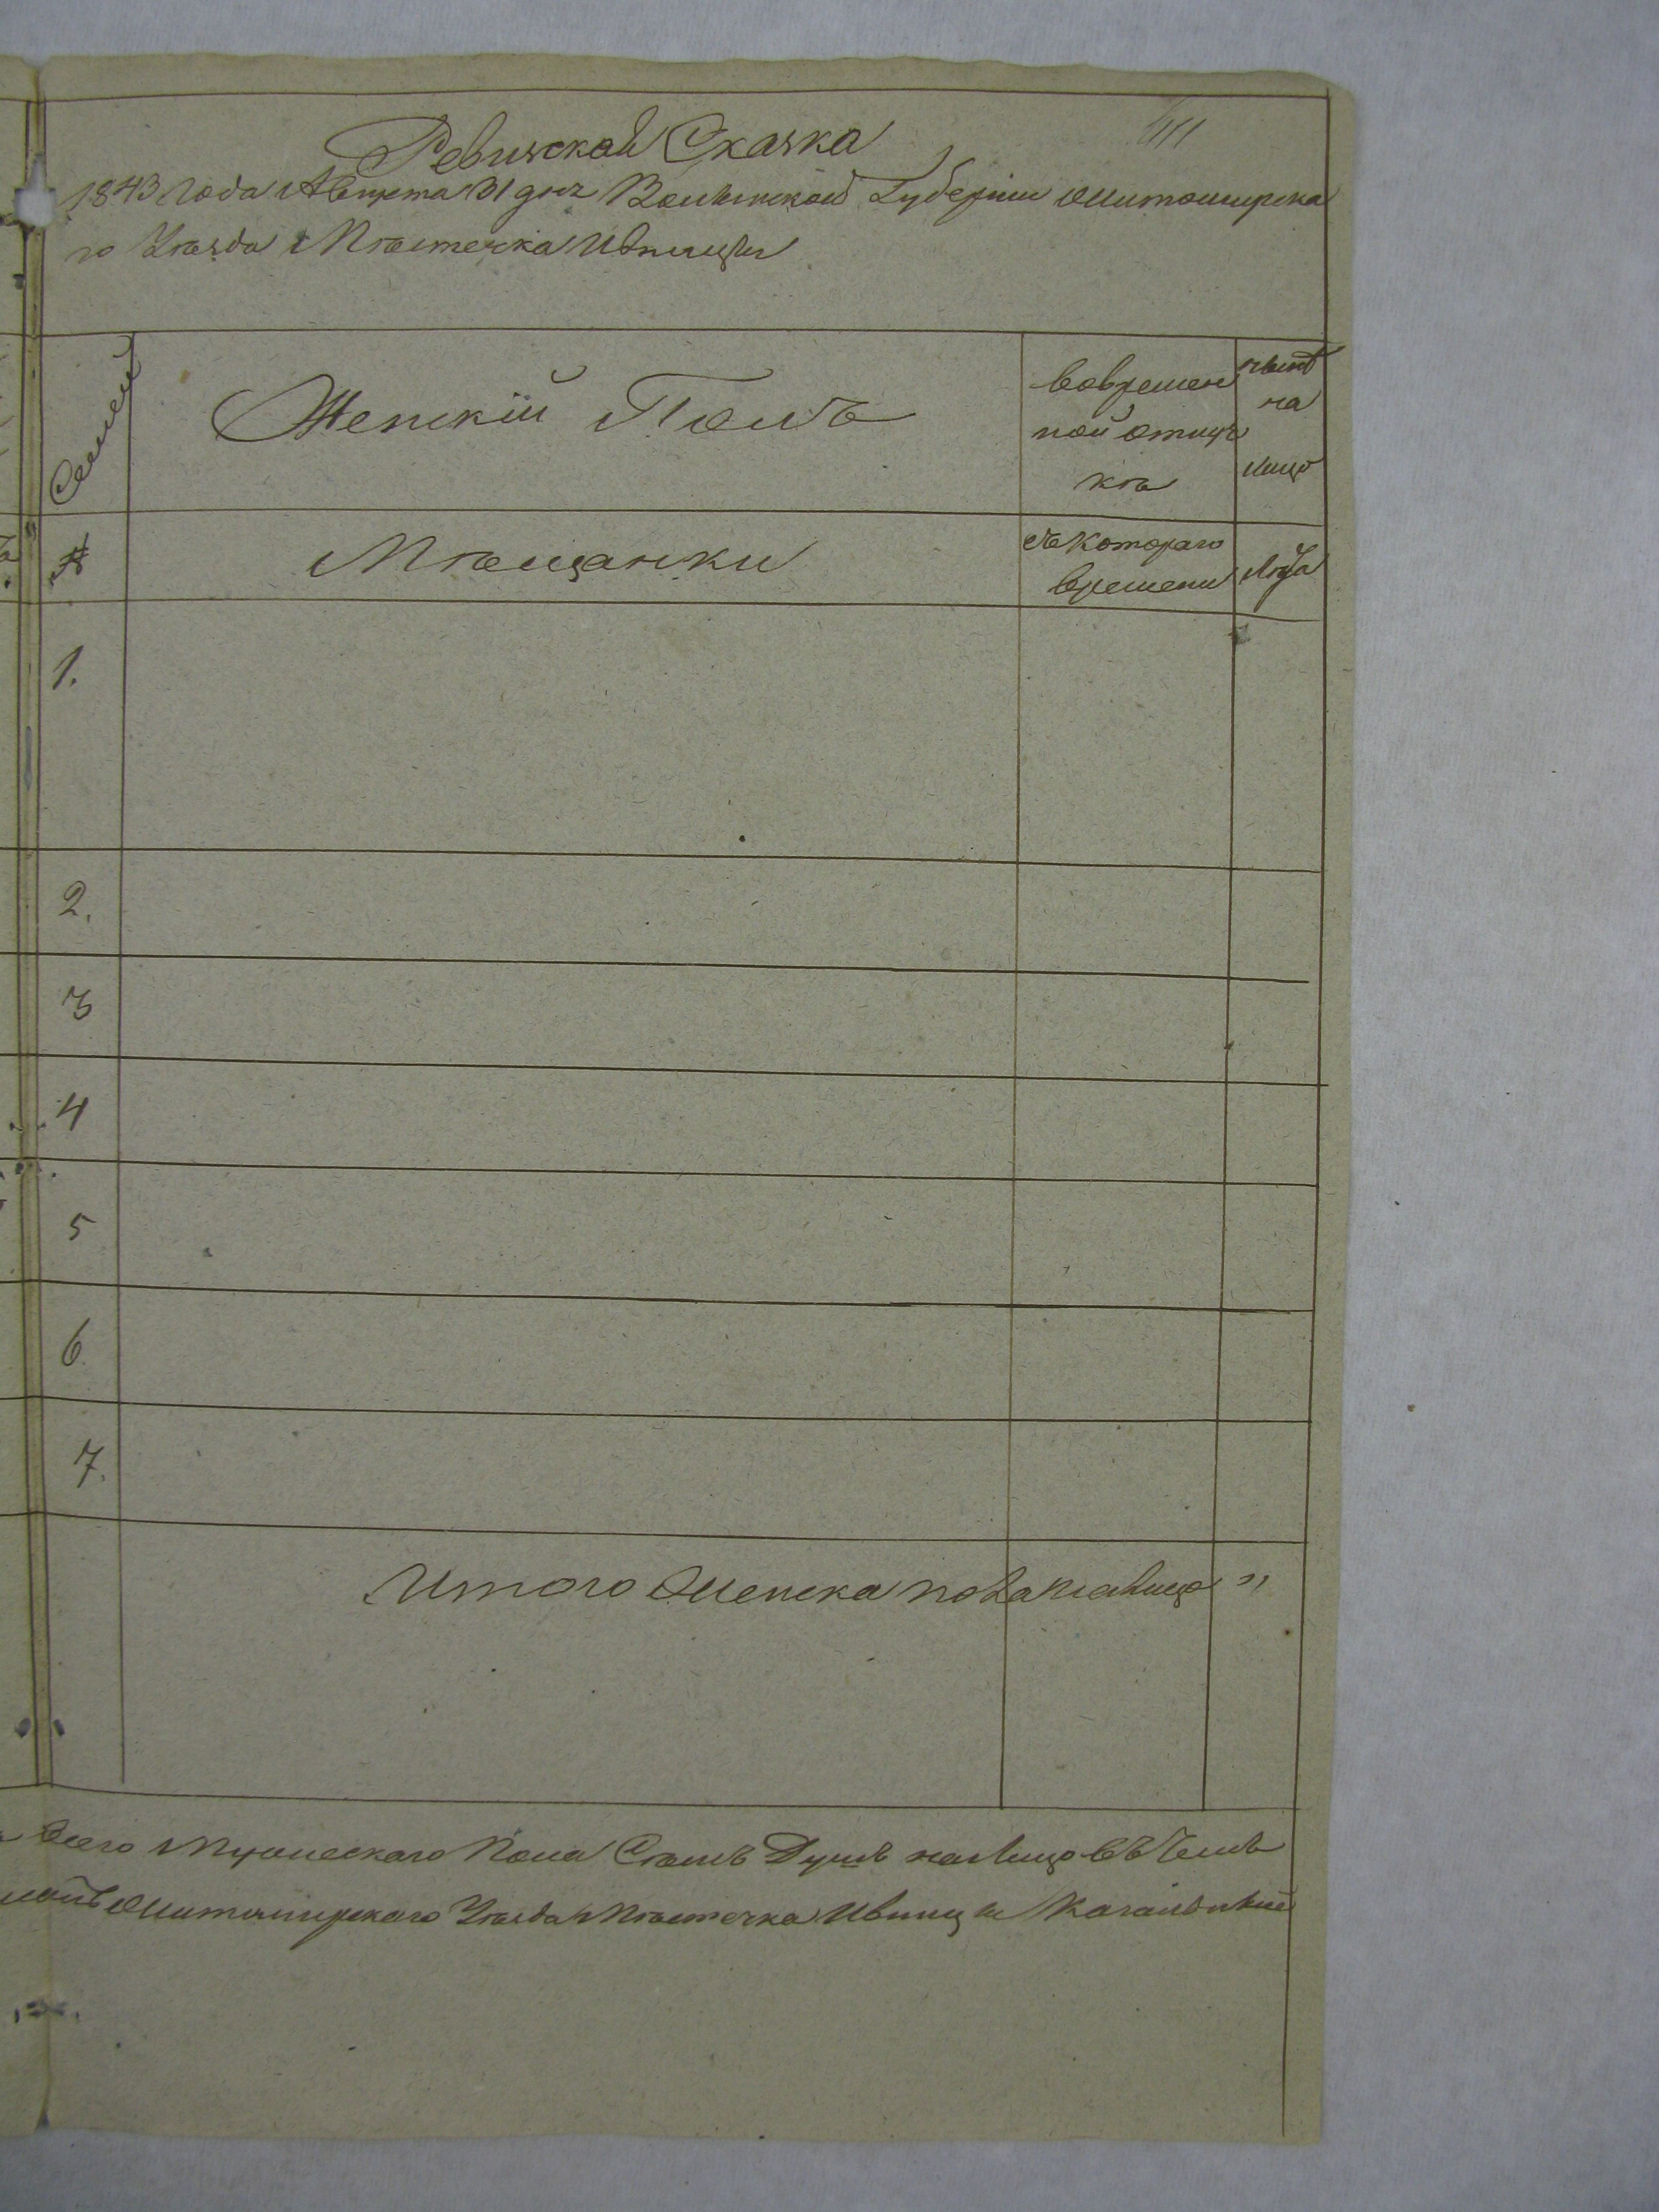 Ревижская Сказка
1843 Года Августа 31 дня Волынской Губерніи Житомирска
го Уѣзда Мѣстечка Ивницы
Семей
Женскій Полъ
вовремен
ной отлуч
кѣ
нынѣ
на
лицо
№
Мѣщанки
съ котораго
времени
Лѣта
1.
2.
3
4
5
6
7.
Итого Женска пола налицо "
всего Мужескаго Пола Сѣмъ Душъ налицо въ
Житомирского Уѣзда Мѣстечка Ивницы